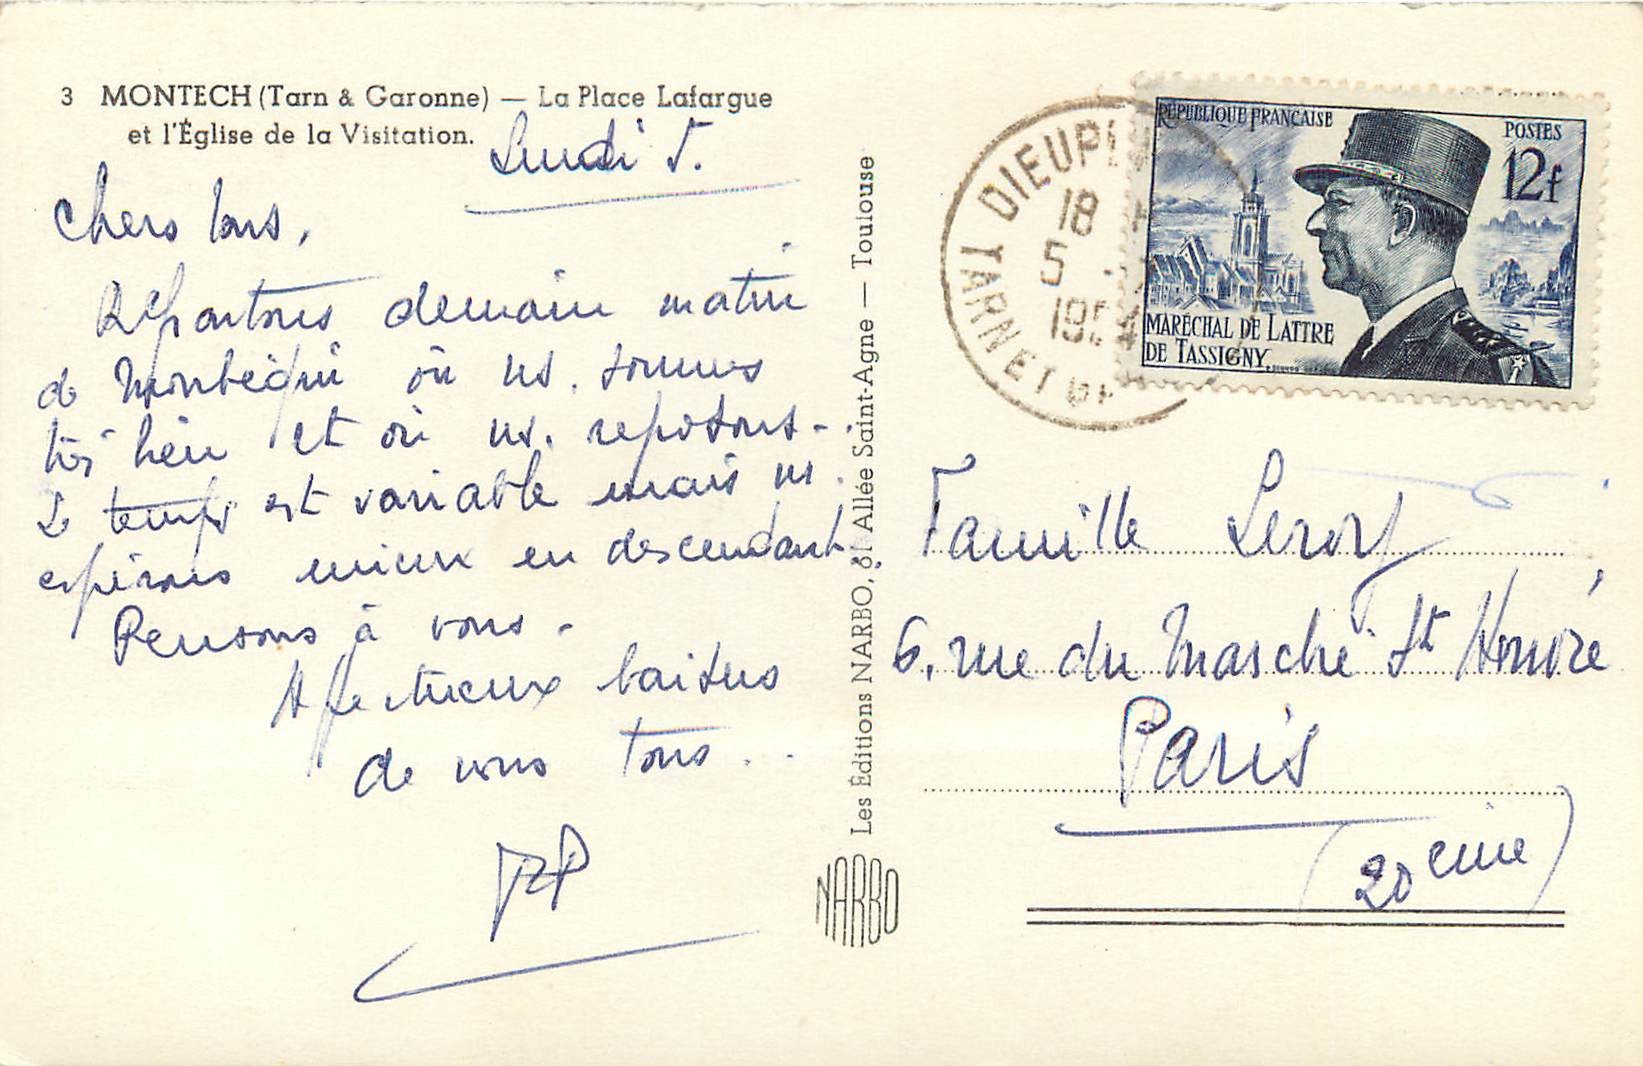 3 MONTECH (Tarn & Garonne) — La Place Lafargue
et l'Église de la Visitation.
Lundi 5.
Chers tous,
Repartons demain matin
de Montbéqui où ns. sommes
très bien et où ns. reposons..
Le temps est variable mais ns.
espérons mieux en descendant
Pensons à vous -
Affectueux baisers
de vous tous...
Les Éditions NARBO, 81 Allée Saint-Agne — Toulouse
NARBO
DIEUP
18
5
195
TARN ET
RÉPUBLIQUE FRANÇAISE
POSTES
12f
MARÉCHAL DE LATTRE
DE TASSIGNY
Famille Leroy
6, rue du Marché St Honoré
Paris
(20 eme)